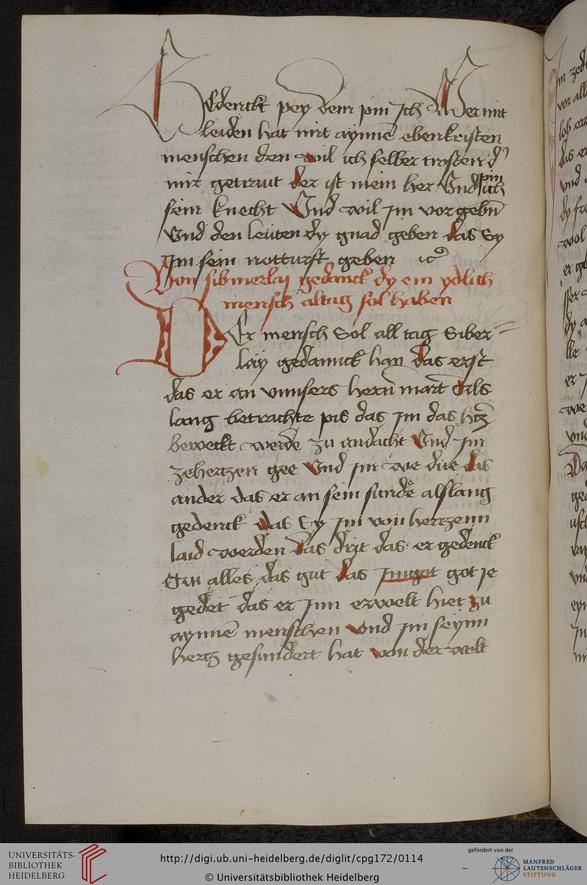 Gedenckt pey dem pin Jch Wer mit
leiden hat mit aynne ebenkristen
menschen den wil ich selber trosten d
mir getraut der ist mein her Vnd pin ich
sein knecht Vnd wil jm vorgebn
Vnd den leuten dy gnad geben das Sy
jm sein notturft geben
Von sibnerlaj gedanck dy ein ydlich
mensch altag sol haben
Der mensch Sol all tag Siber
lay gedannck han das erst
das er an vnnsers hern mart als
lang betrachte pis das jm das
beweckt werde zu andacht Vnd jm
zehertzen gee Vnd jm we due das
ander das er an sein sunde alslang
gedenck das Sy jm von hertzenn
laid werden das drit das er gedenck
an alles das gut das jmgot got je
gedet das er jnn erwelt hiet zu
aynne menschen Vnd jm seynn
hertz gesundert hat von der welt
UNIVERSITÄTS-
BIBLIOTHEK
HEIDELBERG
http://digi.ub.uni-heidelberg.de/diglit/cpg172/0114
© Universitätsbibliothek Heidelberg
gefördert von der
MANFRED
LAUTENSCHLÄGER
STIFTUNG